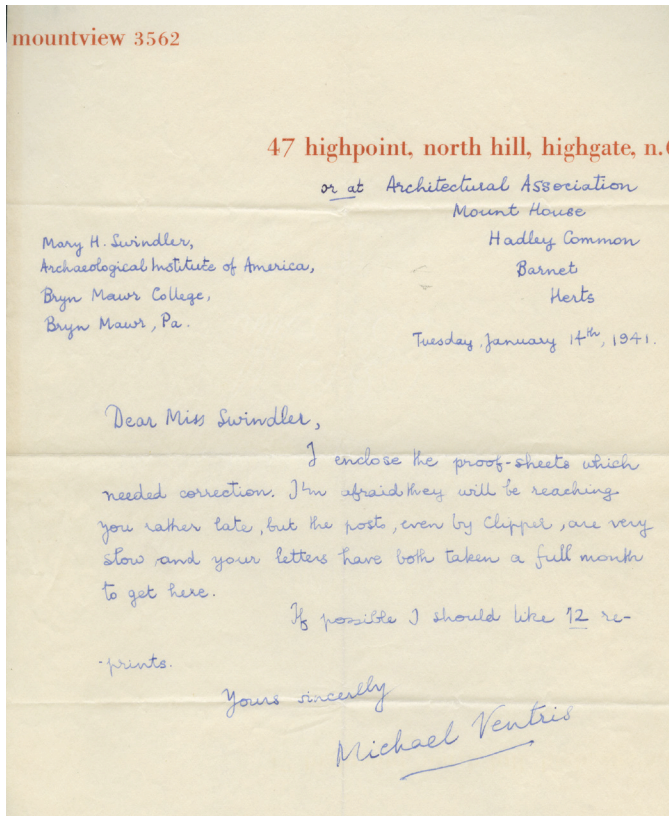 mountview 3562
47 highpoint, north hill, highgate, n.6
or at Architectural Association
Mount House
Hadley Common
Barnet
Herts
Mary H. Swindler,
Archaeological Institute of America,
Bryn Mawr College,
Bryn Mawr, Pa.
Tuesday, January 14th, 1941.
Dear Miss Swindler,
I enclose the proof-sheets which
needed correction. I'm afraid they will be reaching
you rather late, but the posts, even by Clipper, are very
slow and your letters have both taken a full month
to get here.
If possible I should like 12 re-
-prints.
Yours sincerely
Michael Ventris